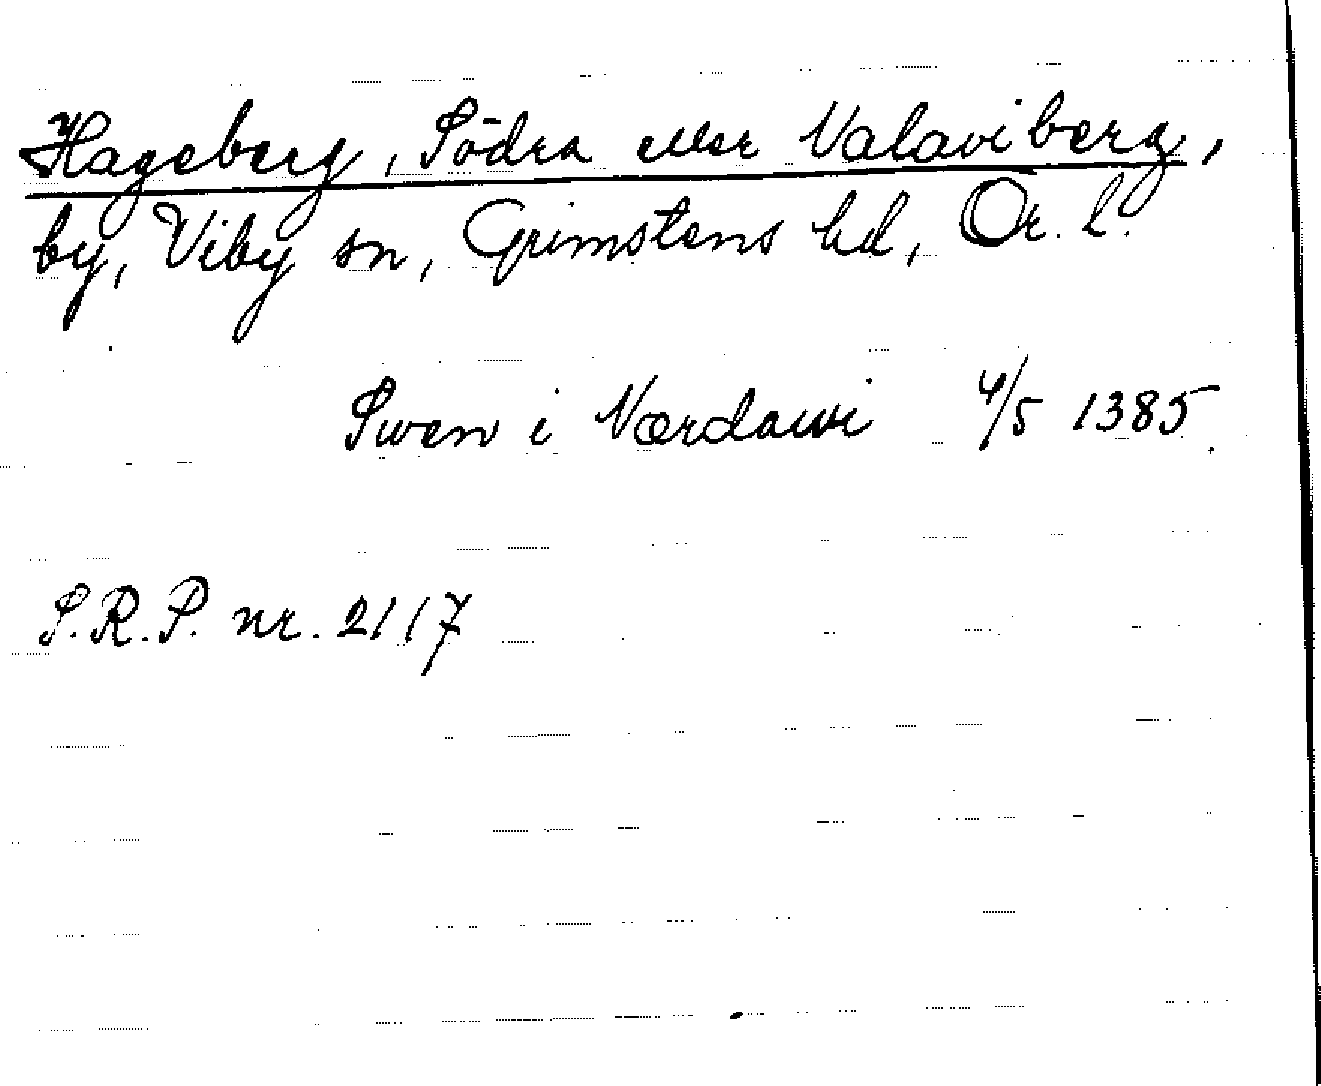 Hageberg, Södra eller Valaviberg,
by, Viby sn, Grimstens hd, Ör. l.
Swen i Værdawi 4/5 1385.
S.R.P. nr. 2117